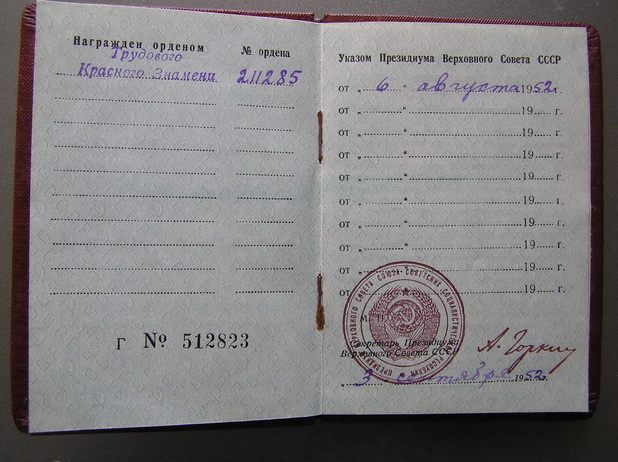 Награжден орденом
№ ордена
Трудового
Красного Знамени
211285
Г № 512823
Указом Президиума Верховного Совета СССР
от „ 6 “ августа 1952 г.
от „ “ 19 г.
от „ “ 19 г.
от „ “ 19 г.
от „ “ 19 г.
от „ “ 19 г.
от „ “ 19 г.
от „ “ 19 г.
от „ “ 19 г.
от „ “ 19 г.
М. П.
Секретарь Президиума
Верховного Совета СССР
А. Горкин
„ 3 сентября 1952 г.
ПРЕЗИДИУМ ВЕРХОВНОГО СОВЕТА СОЮЗА СОВЕТСКИХ СОЦИАЛИСТИЧЕСКИХ РЕСПУБЛИК